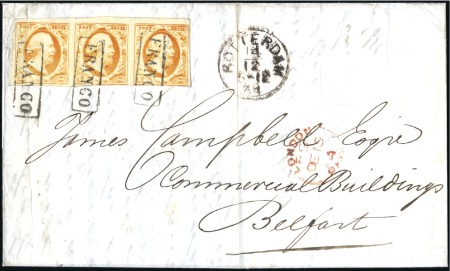 FRANCO
FRANCO
FRANCO
ROTTERDAM
12
LONDON
James Campbell Esqre
Commercial Buildings
Belfast